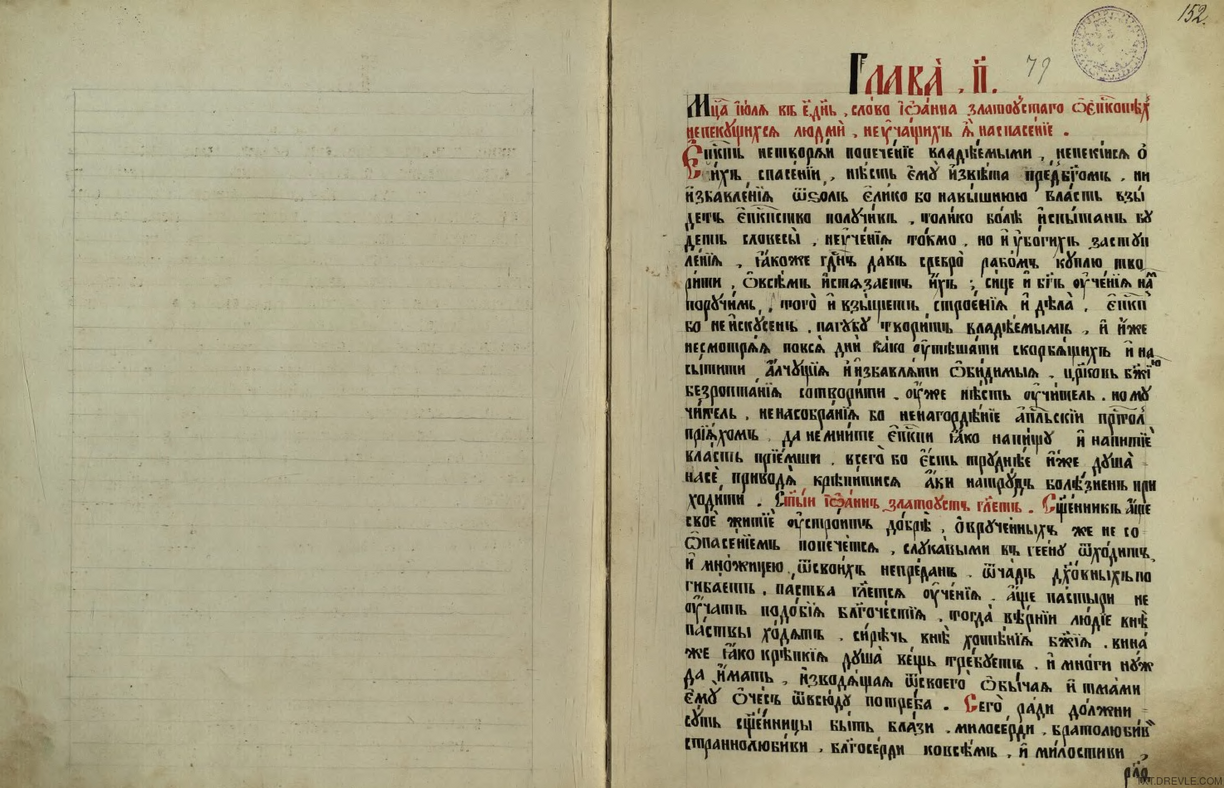 152
79
Глава̀ . п҃.
Мц҃а і҆ю́лѧ въ є҆ди́нъ , сло́во і҆ѡа́нна златоꙋ́стаго ѡ҆є҆пи҃скопѣхъ
непекꙋ́щихсѧ людми̑ , неꙋча́щихъ ѧ҆̀ наспасе́нїе .
Є҆пи҃пъ нетворѧ́и попече́нїе владѣ́емыми , непекі́исѧ ѡ҆
и́хъ спасе́нїи , нѣ́сть є҆мꙋ̀ и҆звѣ́та предбг҃омъ , ни
и҆збавле́нїѧ ѿѕо́лъ є҆ли́ко бо навы́шнюю власть взы́
детъ є҆пи҃пство полꙋчи́въ , толи́ко бо́лѣ и҆спы́танъ бꙋ́
детъ словесы̀ , неꙋче́нїѧ то́кмо . но и҆ ᲂу҆бо́гихъ застꙋп
ле́нїѧ , ꙗ҆́коже гдⷭ҇нъ да́въ сребро̀ рабо́мъ кꙋ́плю тво
ри́ти , ѡ҆все́мъ и҆стѧза́етъ и҆́хъ : си́це и҆ бг҃ъ ᲂу҆че́нїѧ на́м
порꙋчи́мъ , того̀ и҆ взы́щетъ , строе́нїѧ и҆ дѣла̀ . є҆пи҃пъ
бо неи҆скꙋ́сенъ , па́гꙋбꙋ твори́тъ владѣ́емымъ , и҆ и҆́же
несмотрѧ́ѧ повсѧ̑ дни̑ ка́ко ᲂу҆тѣша́ти скорбѧ́щихъ и҆ на
сы́тити а҆́лчꙋщїѧ и҆ и҆збавлѧ́ти ѡ҆би́димыѧ . цр҃ковь бж҃їю
безропта́нїѧ сотвори́ти . ᲂу҆же нѣ́сть ᲂу҆чи́тель . но мꙋ
чи́тель , ненасобра́нїѧ бо ненагордѣ́нїе а҆пⷭ҇льскіи прⷭ҇то́л
прїѧ́хомъ да не мни́те є҆пи҃пи ꙗ҆́ко на пи́щꙋ и҆ напитїѐ
вла́сть прїе́мши . всего́ бо є҆́сть трꙋднѣ́е и҆́же дꙋша̀
насѐ приводѧ̀ крѣ́питисѧ а҆́ки натрꙋ́дъ болѣ́зненъ при
ходи́ти . Ст҃ы́и і҆ѡа́ннъ златоꙋ́стъ гл҃етъ . Сщ҃е́нникъ а҆́ще
своѐ житїѐ ᲂу҆стро́итъ до́брѣ , ѡ҆врꙋче́нныхъ же не со
ѡ҆пасе́нїемъ попече́тсѧ , слꙋка́выми въ гее́нꙋ ѿхо́дитъ ,
и҆ мно́жицею , ѿсвои́хъ непре́данъ . ѿча́дъ дх҃о́вныхъ по
гиба́етъ . па́ства гл҃етсѧ ᲂу҆че́нїѧ . а҆́ще па́стыри не
ᲂу҆ча́тъ подо́бїѧ благоче́стїѧ . тогда̀ вѣ́рнїи лю́дїе кнѣ̀
па́ствы хо́дѧтъ . си́рѣчь кнѣ̀ хотѣ́нїѧ бж҃їѧ . вина́
же ꙗ҆́ко крѣ́пкїѧ дꙋша̀ ве́щь тре́бꙋетъ . и҆ мно́ги нꙋ́ж
да и҆́мать , и҆зводѧ́щаѧ ѿсвоего̀ ѡ҆бы́чаѧ и҆ тма́ми
є҆мꙋ̀ ѻ҆че́съ ѿвсю́дꙋ потре́ба . Сего̀ ра́ди до́лжни
сꙋ́ть сщ҃е́нницы бы́ть бла́зи . милосе́рди . братолю́бив
страннолю́биви , благосе́рди ковсѣ́мъ , и҆ ми́лостиви ,
MT.DREVLE.COM